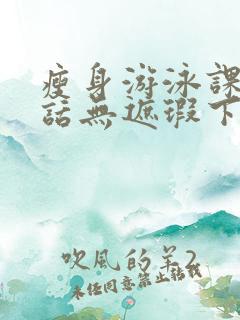 瘦身游泳課
話無遮瑕下
吹風的羊2
未經同意禁止轉載